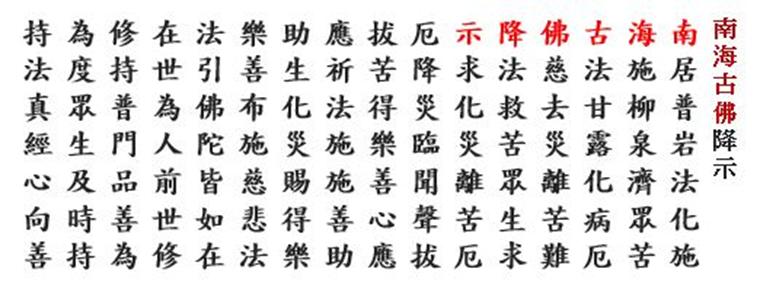 南海古佛降示
南居普岩法化施
海施柳泉濟眾苦
古法甘露化病厄
佛慈去災離苦難
降法救苦眾生求
示求化災離苦厄
厄降災臨聞聲拔
拔苦得樂善心應
應祈法施施善助
助生化災賜得樂
樂善布施慈悲法
法引佛陀皆如在
在世為人前世修
修持普門品善為
為度眾生及時持
持法真經心向善